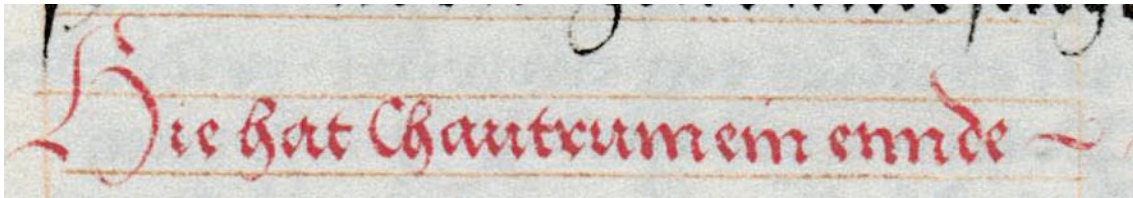 Hie hat Chautrum ein ennde